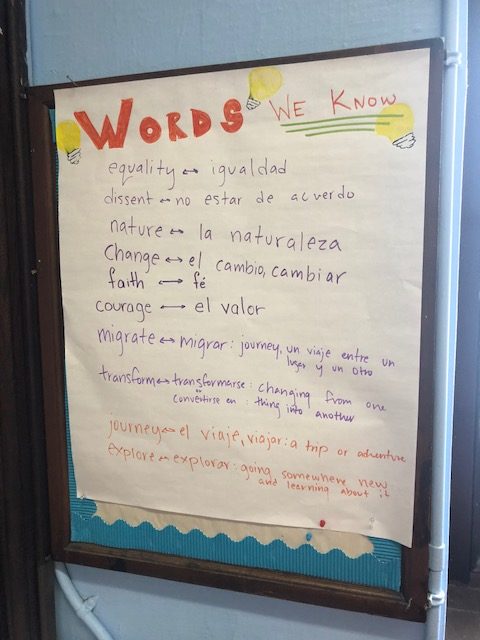 WORDS WE KNOW
equality ↔ igualdad
dissent ↔ no estar de acuerdo
nature ↔ la naturaleza
Change ↔ el cambio, cambiar
faith ↔ fé
courage ↔ el valor
migrate ↔ migrar: journey, un viaje entre un
lugar y un otro
transform ↔ transformarse: changing from one
or
convertirse en: thing into another
journey ↔ el viaje, viajar: a trip or adventure
explore ↔ explorar: going somewhere new
and learning about it